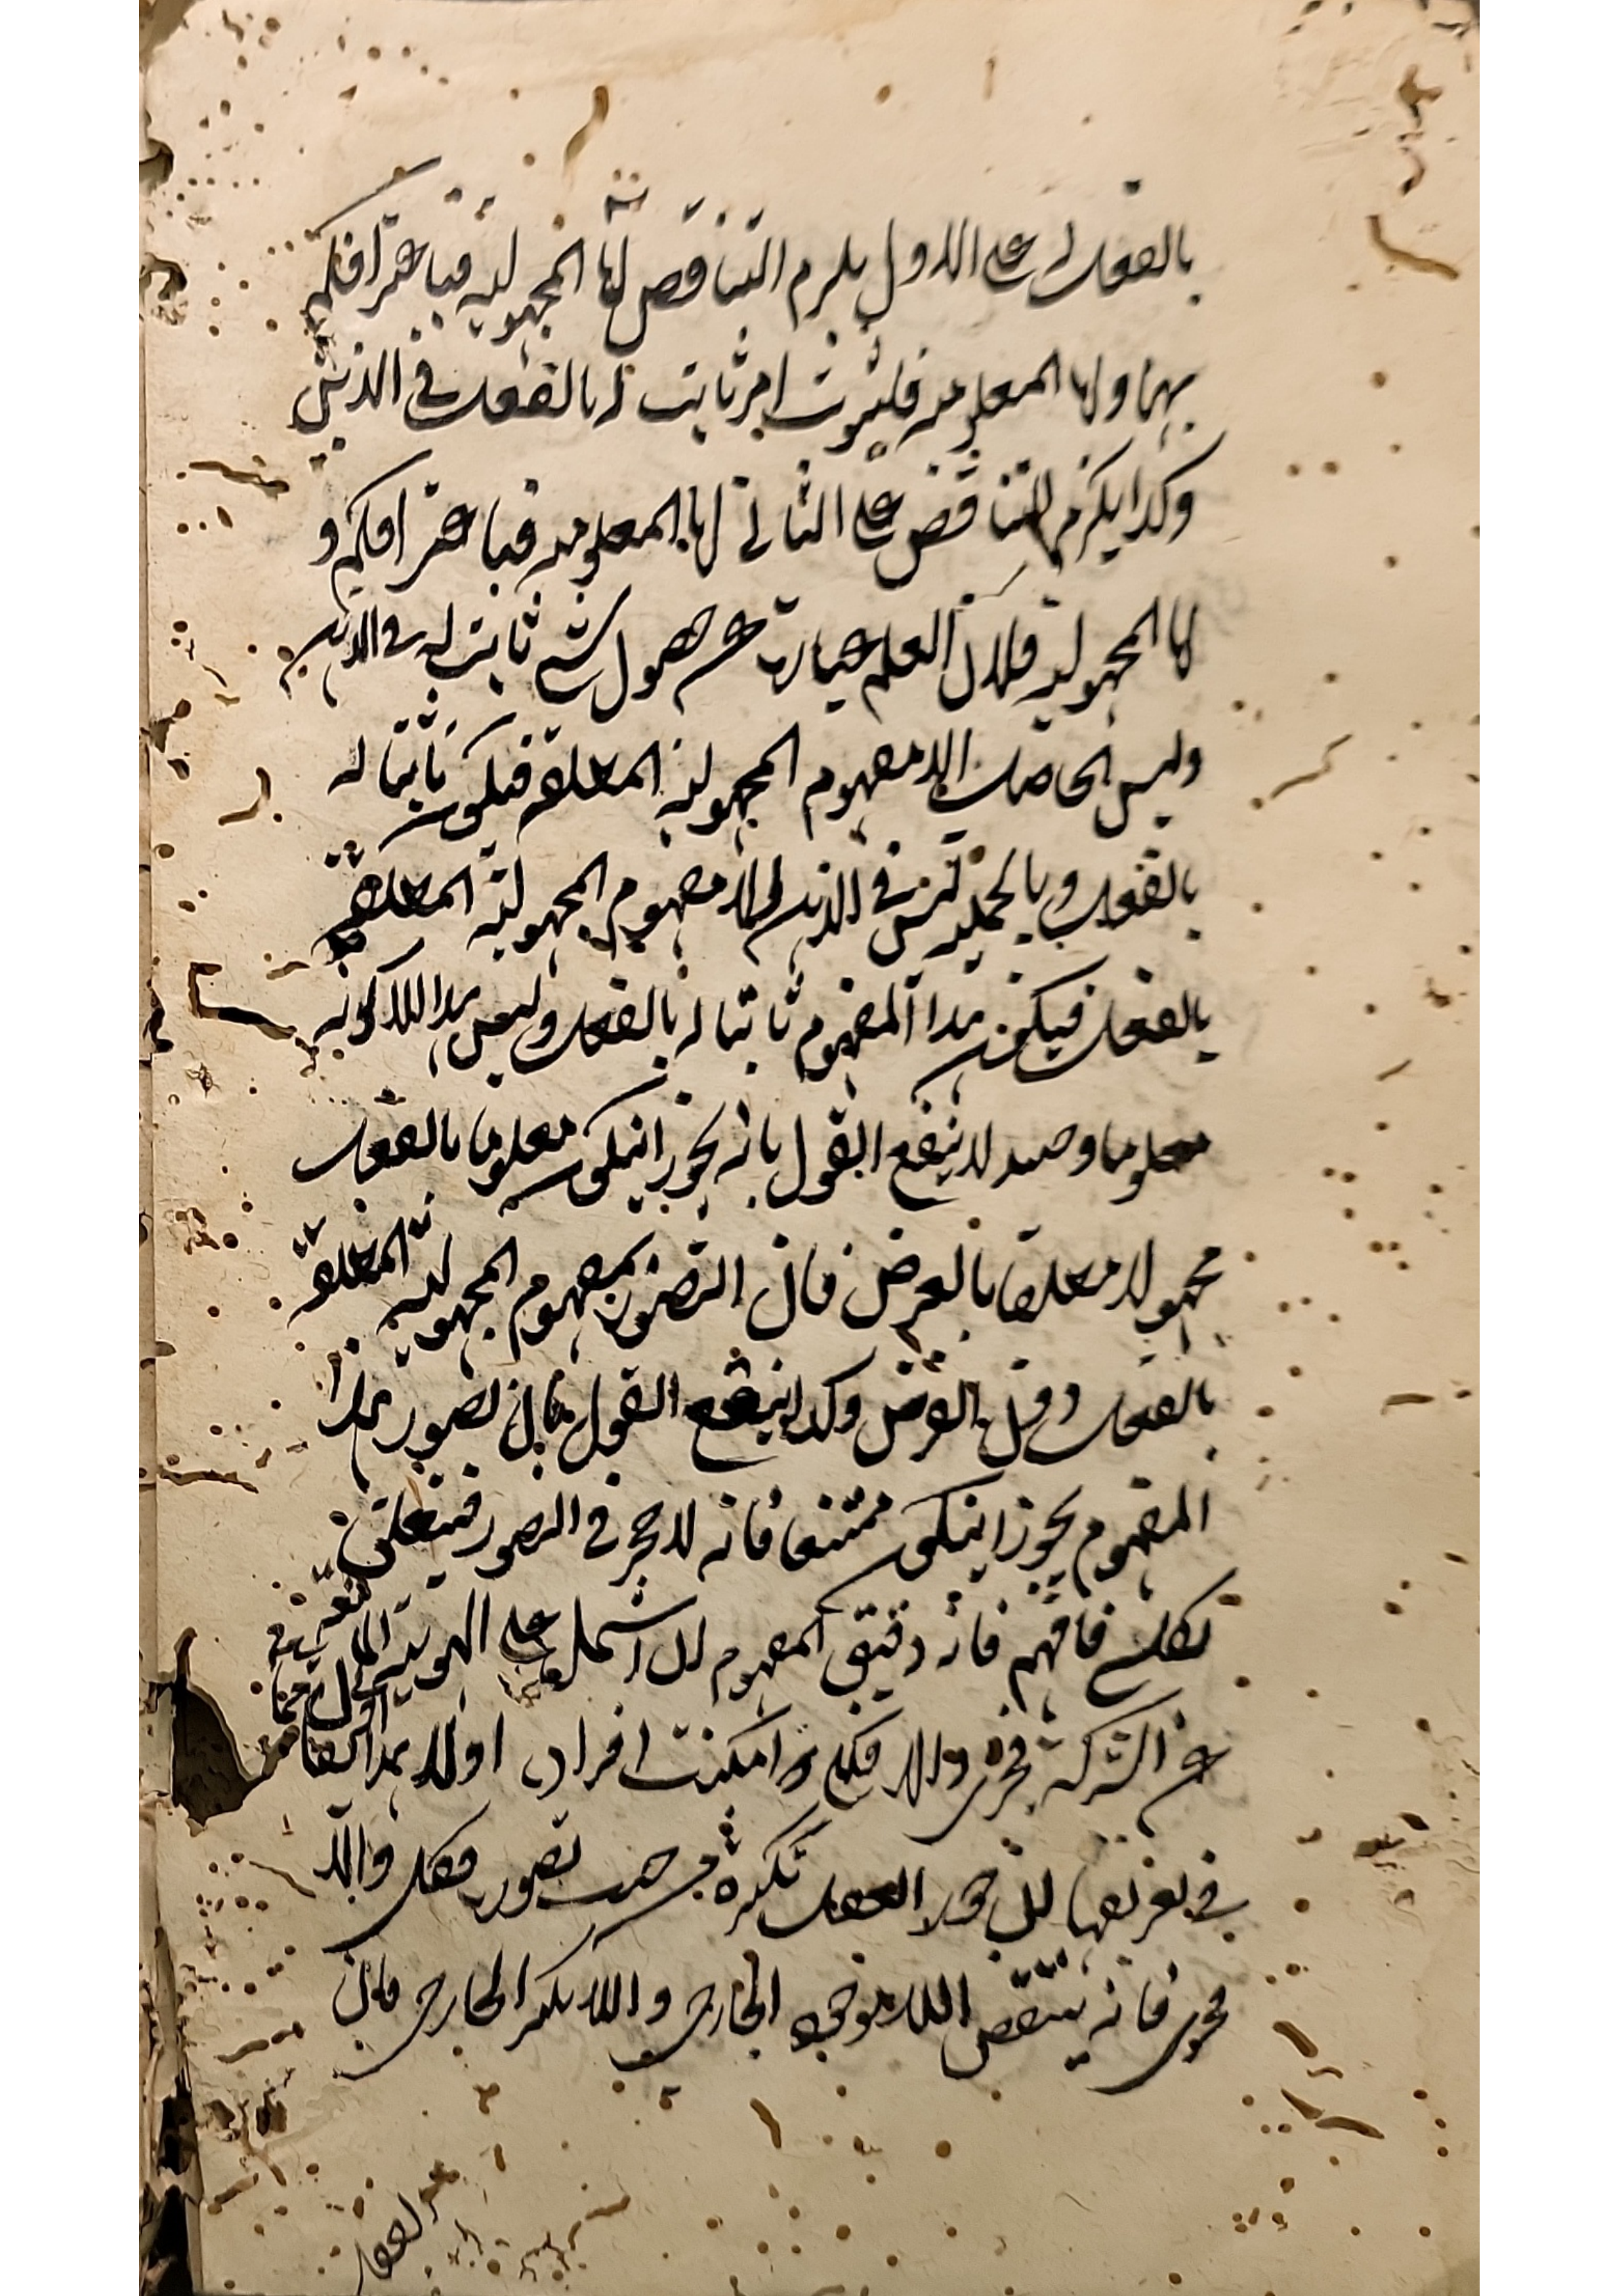 بالفعل له على الاول يلزم التناقض اما المجهولية فباعتراف
بهما واما المعلومية فلثبوت امر ثابت له بالفعل في الذهن
وكذا يلزم التناقض على الثاني اما المعلومية فباعتراف و
اما المجهولية فلان العلم عبارة عن حصول شيء ثابت له في الذهن
وليس الحاصل الا مفهوم المجهولية المطلقة فيكون ثابتا له
بالفعل وبالجملة ليس في الذهن الا مفهوم المجهولية المطلقة
بالفعل فيكون هذا المفهوم ثابتا له بالفعل وليس هذا الا كونه
معلوما وحينئذ لا ينفع القول بانه يجوز ان يكون معلوما بالفعل
مجهولا مطلقا بالعرض فان التصور بمفهوم المجهولية المطلقة
بالفعل دون الفرض وكذا لا ينفع القول بان تصور هذا
المفهوم يجوز ان يكون ممتنعا فانه لا حجر في التصور فيتعلق
بكل شيء فافهم فانه دقيق المفهوم ان اشتمل على الهوية المانعة
عن الشركة فجزئي والا فكلي امكنت افراده اولا هذا
في تعريفهما ان جوز العقل تكثره من حيث تصوره فكلي والا
فجزئي فانه ينتقض الخارجي والا الخارجي فان